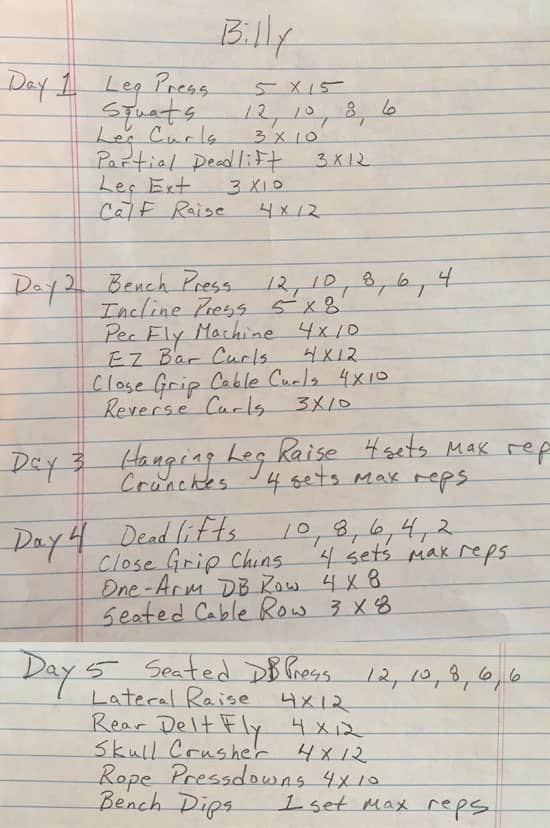 Billy
Day 1 Leg Press 5 x 15
Squats 12, 10, 8, 6
Leg Curls 3 x 10
Partial Deadlift 3 x 12
Leg Ext 3 x 10
Calf Raise 4 x 12
Day 2 Bench Press 12, 10, 8, 6, 4
Incline Press 5 x 8
Pec Fly Machine 4 x 10
EZ Bar Curls 4 x 12
Close Grip Cable Curls 4 x 10
Reverse Curls 3 x 10
Day 3 Hanging Leg Raise 4 sets max rep
Crunches 4 sets max reps
Day 4 Deadlifts 10, 8, 6, 4, 2
Close Grip Chins 4 sets max reps
One-Arm DB Row 4 x 8
Seated Cable Row 3 x 8
Day 5 Seated DB Press 12, 10, 8, 6, 6
Lateral Raise 4 x 12
Rear Delt Fly 4 x 12
Skull Crusher 4 x 12
Rope Pressdowns 4 x 10
Bench Dips 1 set max reps